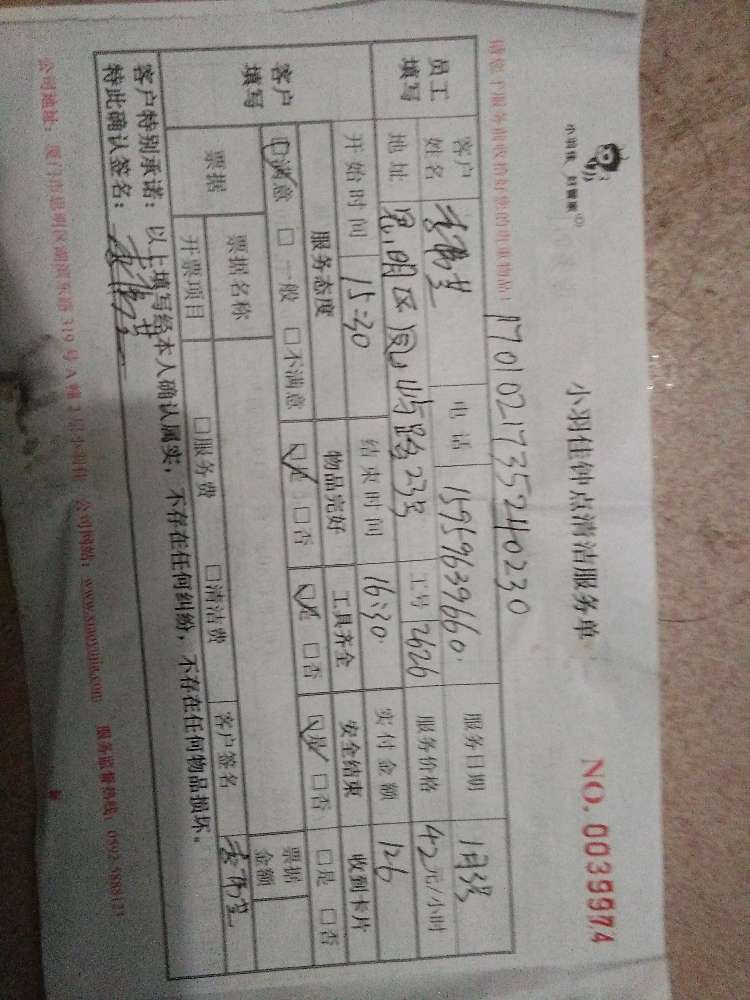 小羽佳 好管家
小羽佳钟点清洁服务单
NO. 0039974
17010217735240230
请您于服务前收检好您的贵重物品！
员工填写
客户姓名 电话 15959639660. 服务日期
地址 思明区凤屿路23号 工号 2626 服务价格 42元/小时
开始时间 15:30 结束时间 16:30 实付金额 126 收到卡片
客户填写
服务态度 物品完好 工具齐全 安全结束 □是 □否
☑满意 □一般 □不满意 ☑是 □否 ☑是 □否 ☑是 □否
票据 票据名称 票据金额
开票项目 □服务费 □清洁费 客户签名
客户特别承诺：以上填写经本人确认属实，不存在任何纠纷，不存在任何物品损坏。
特此确认签名：
公司地址：厦门市思明区湖滨东路319号A幢2层小羽佳 公司网站：www.xiaoyujia.com 服务监督热线：0592-5888121